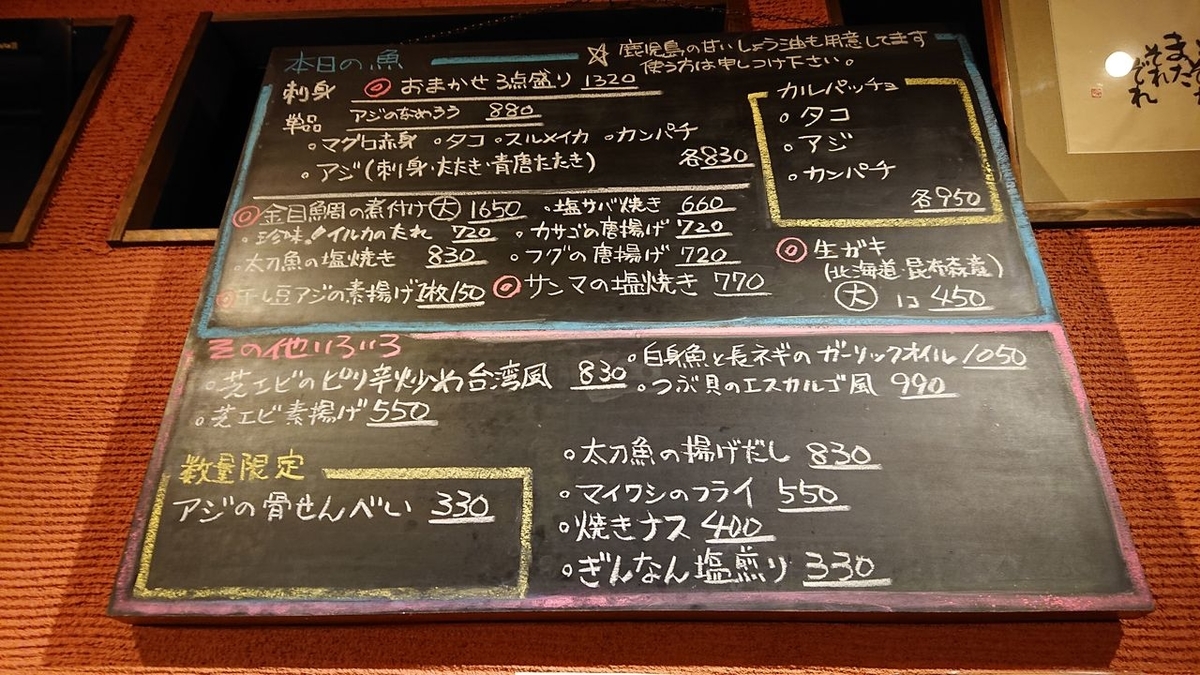 本日の魚
☆ 鹿児島の甘いしょう油も用意してます
使う方は申しつけ下さい。
刺身 ◎ おまかせ3点盛り 1320
単品 アジのなめろう 880
・マグロ赤身 ・タコ ・スルメイカ ・カンパチ
・アジ(刺身・たたき・青唐たたき) 各830
カルパッチョ
・タコ
・アジ
・カンパチ
各950
◎金目鯛の煮付け(大) 1650
・塩サバ焼き 660
・珍味!イルカのたれ 720
・カサゴの唐揚げ 720
・太刀魚の塩焼き 830
・フグの唐揚げ 720
◎干し豆アジの素揚げ 1枚150
◎サンマの塩焼き 770
◎生ガキ
(北海道・昆布森産)
(大) 1コ 450
その他いろいろ
・芝エビのピリ辛炒め台湾風 830
・芝エビ素揚げ 550
・白身魚と長ネギのガーリックオイル 1050
・つぶ貝のエスカルゴ風 990
数量限定
アジの骨せんべい 330
・太刀魚の揚げだし 830
・マイワシのフライ 550
・焼きナス 400
・ぎんなん塩煎り 330
また
それ
ぞれ